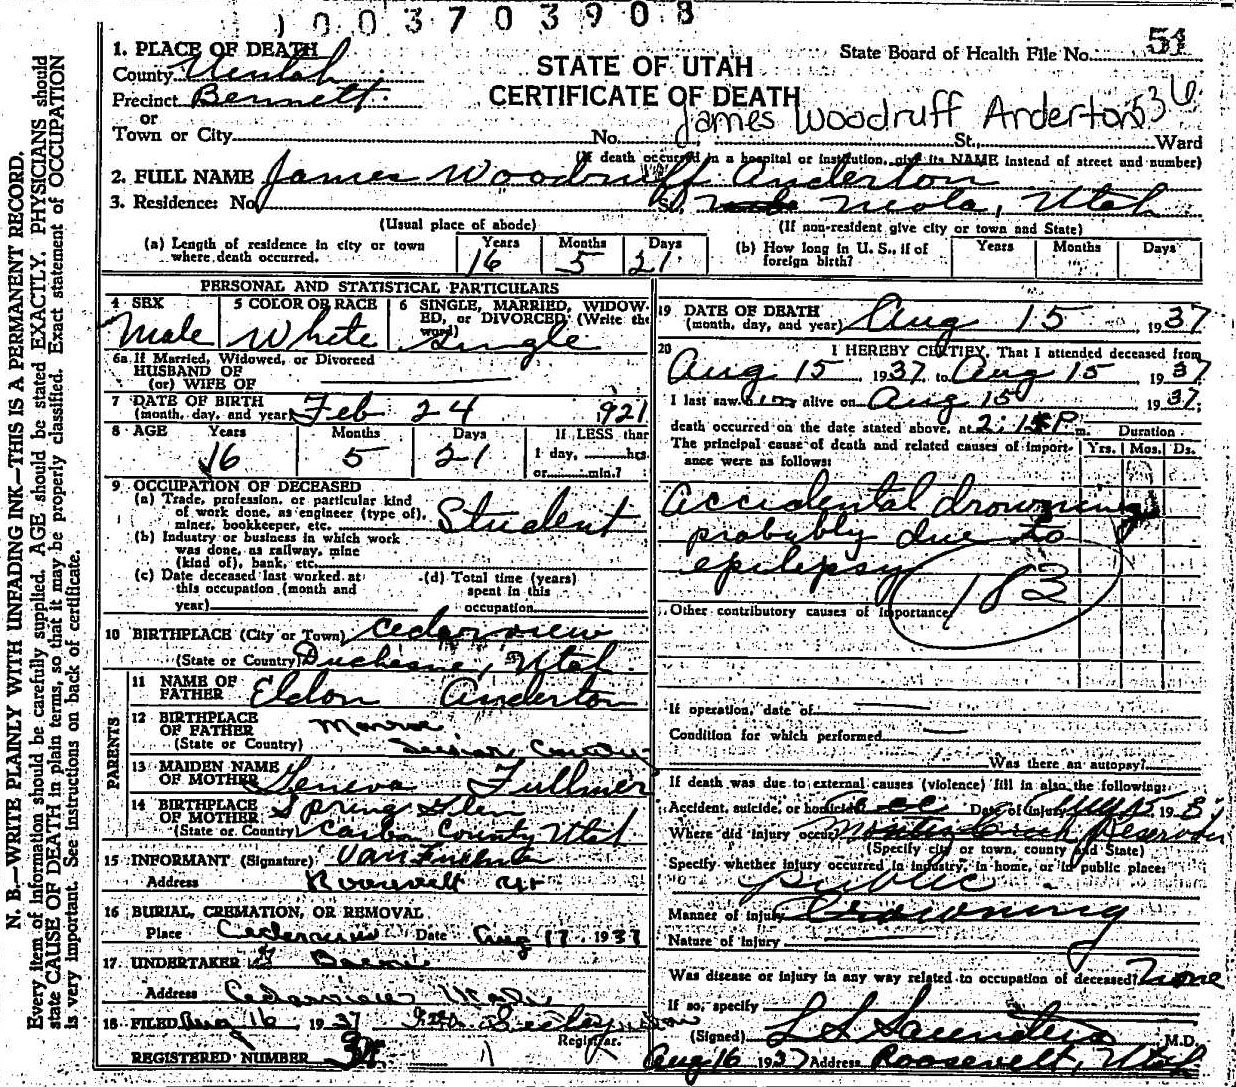 1003703908
1. PLACE OF DEATH
County Uintah
Precinct Bennett.
or
Town or City
STATE OF UTAH
CERTIFICATE OF DEATH
State Board of Health File No. 54
536
James Woodruff Anderton
No. St. Ward
(If death occurred in a hospital or institution, give its NAME instead of street and number)
2. FULL NAME James Woodruff Anderton
3. Residence: No. St. Neola, Utah
(Usual place of abode) (If non-resident give city or town and State)
(a) Length of residence in city or town where death occurred. Years 16 Months 5 Days 21
(b) How long in U. S., if of foreign birth? Years Months Days
PERSONAL AND STATISTICAL PARTICULARS
4 SEX Male
5 COLOR OR RACE White
6 SINGLE, MARRIED, WIDOWED, or DIVORCED (Write the word) Single
6a If Married, Widowed, or Divorced
HUSBAND OF
(or) WIFE OF
7 DATE OF BIRTH
(month, day, and year) Feb 24 1921
8 AGE Years 16 Months 5 Days 21 If LESS than 1 day, hrs. or min.?
9 OCCUPATION OF DECEASED
(a) Trade, profession, or particular kind of work done, as engineer (type of), miner, bookkeeper, etc. Student
(b) Industry or business in which work was done, as railway, mine (kind of), bank, etc.
(c) Date deceased last worked at this occupation (month and year)
(d) Total time (years) spent in this occupation
10 BIRTHPLACE (City or Town) Cedarview
(State or Country) Duchesne, Utah
PARENTS
11 NAME OF FATHER Eldon Anderton
12 BIRTHPLACE OF FATHER Monroe
(State or Country) Sevier County
13 MAIDEN NAME OF MOTHER Geneva Fullmer
14 BIRTHPLACE OF MOTHER Spring Glen
(State or Country) Carbon County Utah
15 INFORMANT (Signature) Van Fullmer
Address Roosevelt Ut
16 BURIAL, CREMATION, OR REMOVAL
Place Cedarview Date Aug 17 1937
17 UNDERTAKER
Address Cedarview Utah
18 FILED Aug 16, 1937
Registrar.
REGISTERED NUMBER
19 DATE OF DEATH
(month, day, and year) Aug 15 1937
20 I HEREBY CERTIFY, That I attended deceased from
Aug 15, 1937, to Aug 15, 1937
I last saw him alive on Aug 15, 1937,
death occurred on the date stated above, at 2:15 P m.
The principal cause of death and related causes of importance were as follows: Duration Yrs. Mos. Ds.
Accidental drowning
probably due to
epilepsy
183
Other contributory causes of importance
If operation, date of
Condition for which performed
Was there an autopsy?
If death was due to external causes (violence) fill in also the following:
Accident, suicide, or homicide acc Date of injury Aug 15, 193
Where did injury occur? Montes Creek Reservoir
(Specify city or town, county and State)
Specify whether injury occurred in industry, in home, or in public place:
public
Manner of injury Drowning
Nature of injury
Was disease or injury in any way related to occupation of deceased? None
If so, specify
(Signed) L S Saunders M.D.
Aug 16 1937 Address Roosevelt, Utah
N. B.—WRITE PLAINLY WITH UNFADING INK—THIS IS A PERMANENT RECORD.
Every item of information should be carefully supplied. AGE should be stated EXACTLY. PHYSICIANS should
state CAUSE OF DEATH in plain terms, so that it may be properly classified. Exact statement of OCCUPATION
is very important. See instructions on back of certificate.